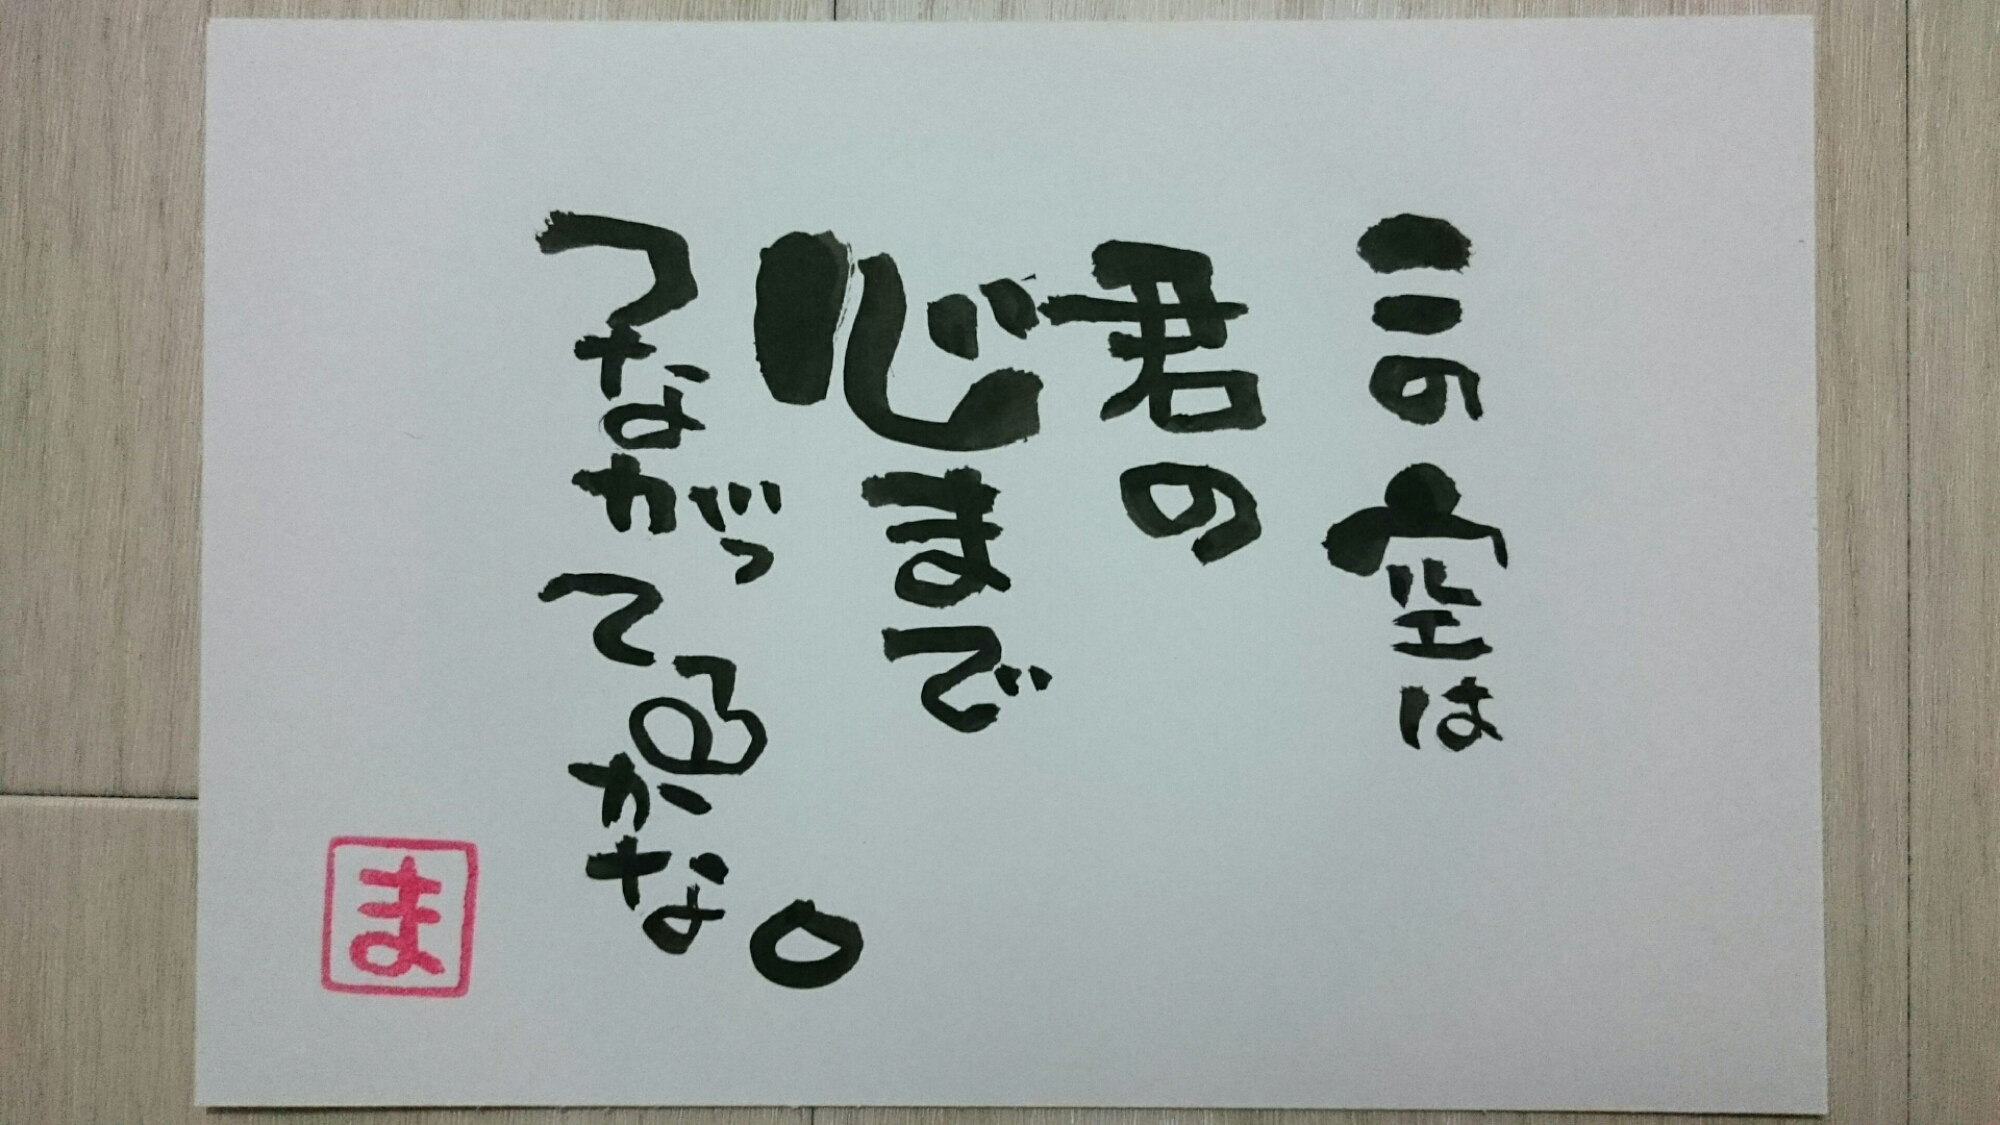 この空は
君の
心まで
つながってるかな。
ま